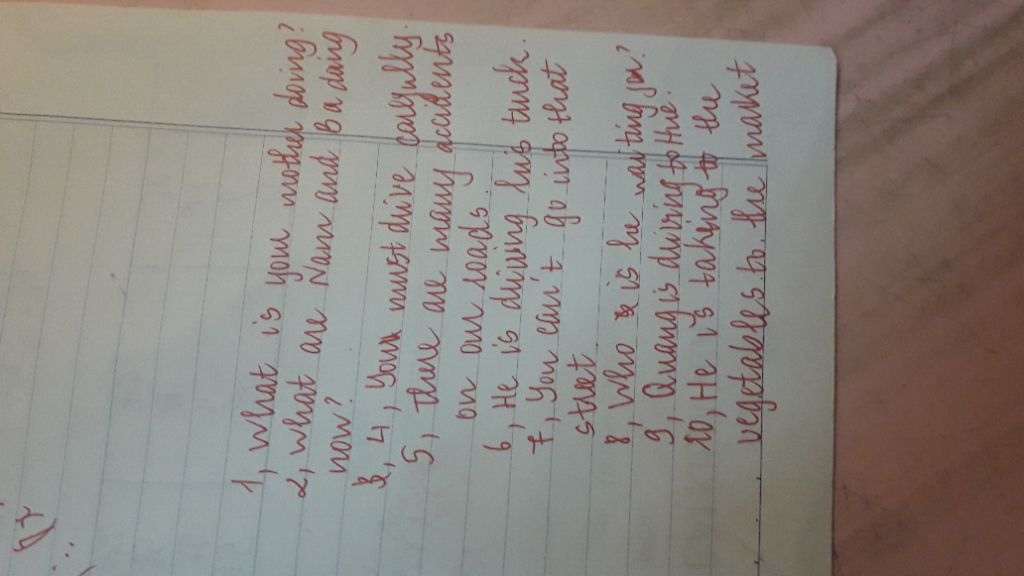 1, What is you mother doing?
2, what are Nam and Ba doing
now?
3, 4, You must drive carefully.
5, there are many accidents
on our roads.
6, He is driving his truck.
7, You can't go into that
street
8, Who is he waiting for?
9, Quang is driving to the.
10, He is taking to the
vegetables to the market